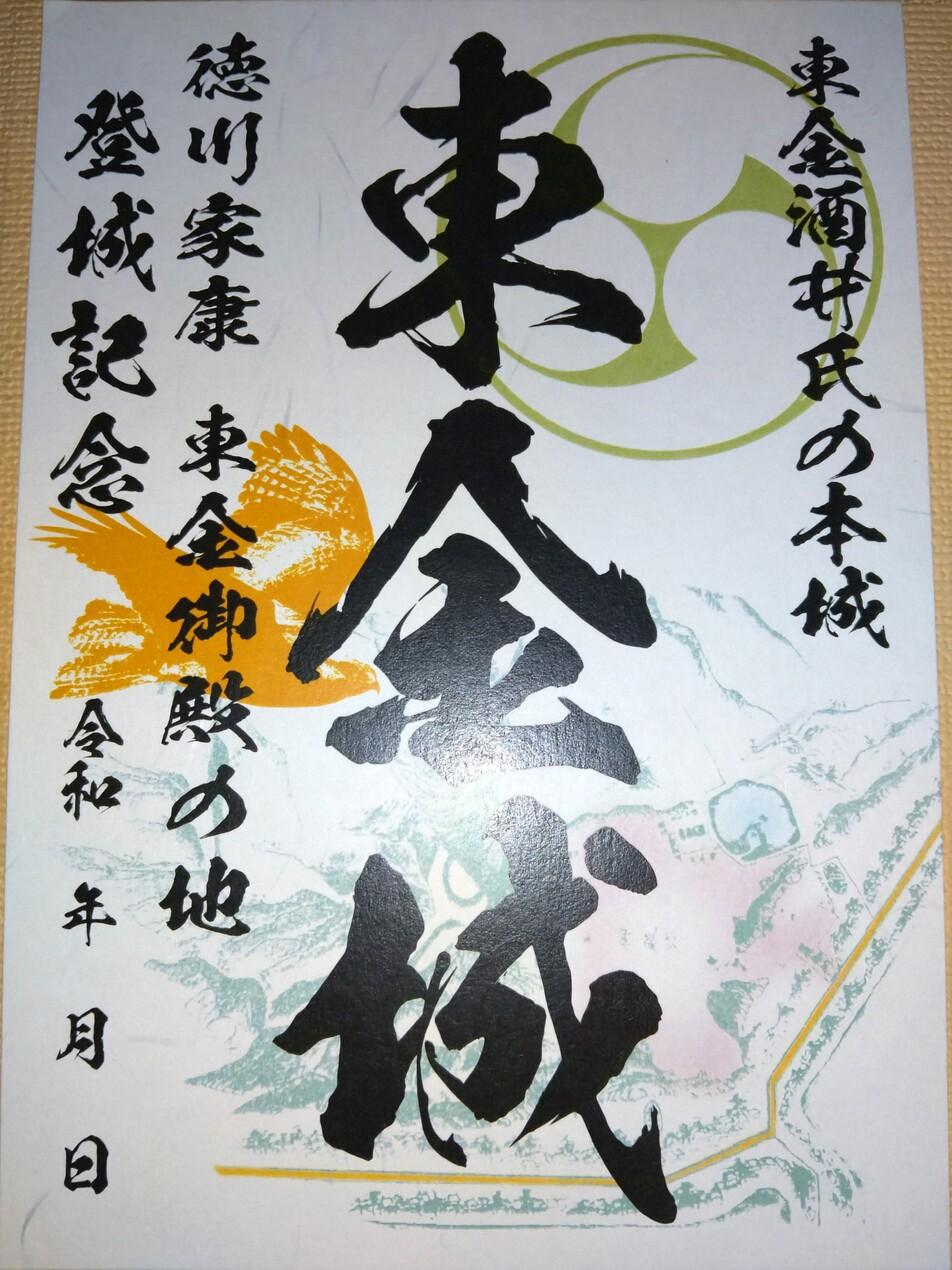 東金酒井氏の本城
東金城
徳川家康 東金御殿の地
登城記念
令和 年 月 日